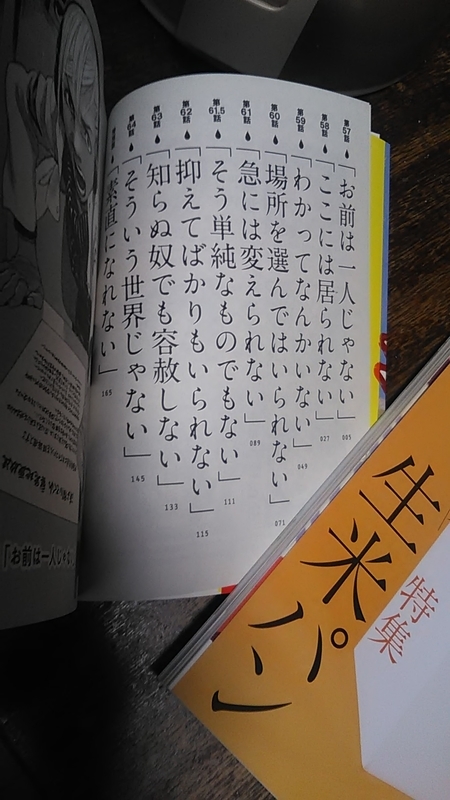 第57話
「お前は一人じゃない」
005
第58話
「ここには居られない」
027
第59話
「わかってなんかいない」
049
第60話
「場所を選んではいられない」
071
第61話
「急には変えられない」
089
第61.5話
「そう単純なものでもない」
111
第62話
「抑えてばかりもいられない」
115
第63話
「知らぬ奴でも容赦しない」
133
第64話
「そういう世界じゃない」
145
「素直になれない」
165
「お前は一人じゃな
特集
生米パン